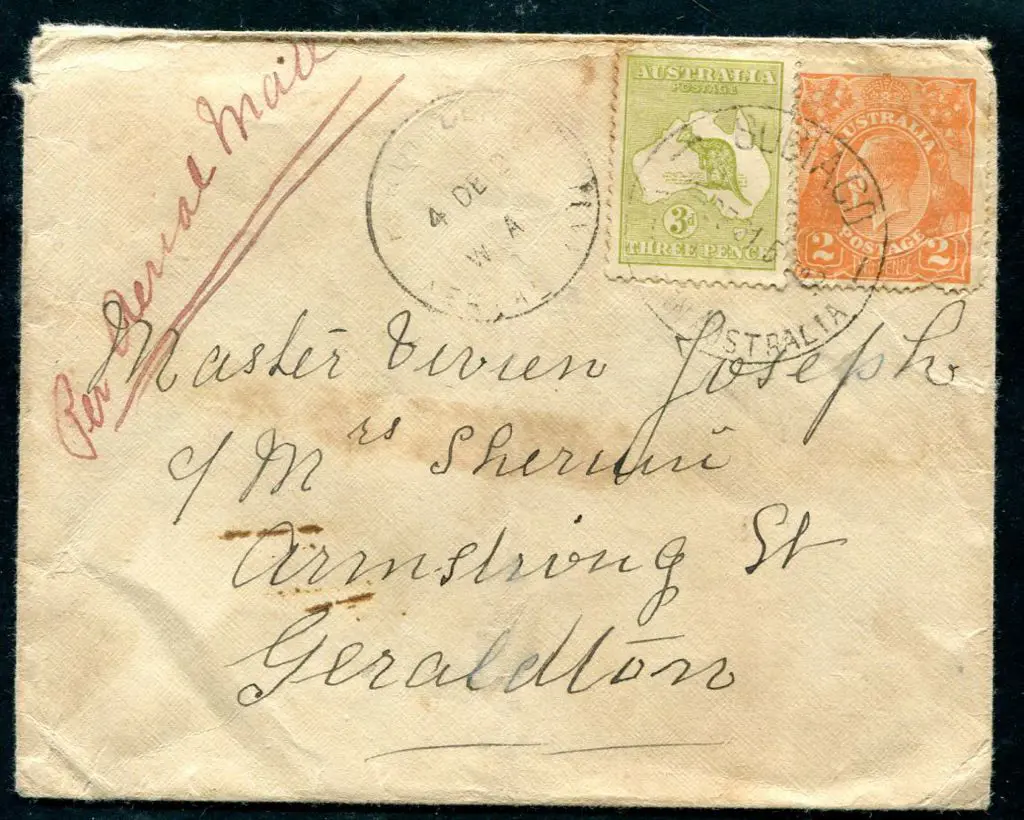 Per Aerial Mail
4 DE
W A
AERIAL
AUSTRALIA
POSTAGE
3d
THREE PENCE
SUBIACO
AUSTRALIA
AUSTRALIA
POSTAGE
2 PENCE 2
Master Vivien Joseph
c/ Mrs
Armstrong St
Geraldton